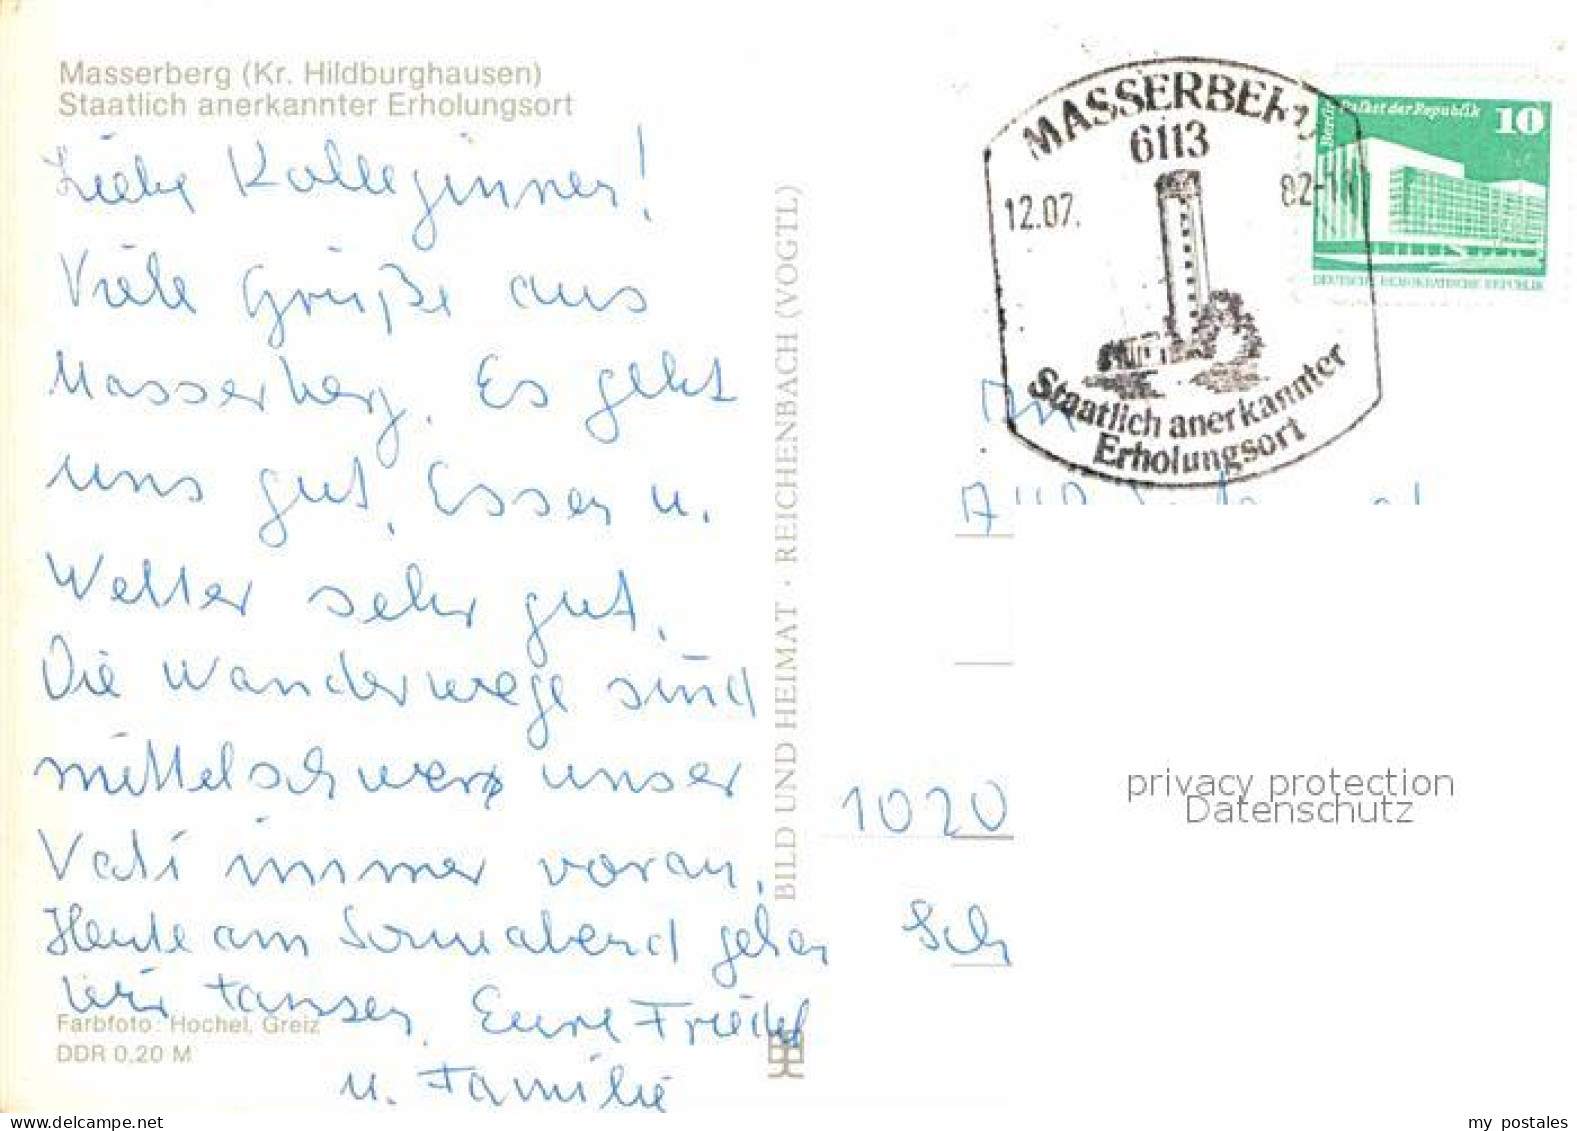 Masserberg (Kr. Hildburghausen)
Staatlich anerkannter Erholungsort
Liebe Kolleginnen!
Viele Grüße aus
Masserberg. Es geht
uns gut, Essen u.
Wetter sehr gut.
Die Wanderwege sind
mittelschwer unser
Vati immer voran.
Heute am Sonnabend gehen
wir tanzen. Eure Friedel
u. Familie
Farbfoto: Hochel, Greiz
DDR 0,20 M
BILD UND HEIMAT · REICHENBACH (VOGTL)
MASSERBERG
6113
12.07.
82-
Staatlich anerkannter
Erholungsort
Berlin Palast der Republik
10
DEUTSCHE DEMOKRATISCHE REPUBLIK
An
1020
Sch
privacy protection
Datenschutz
www.delcampe.net
my_postales